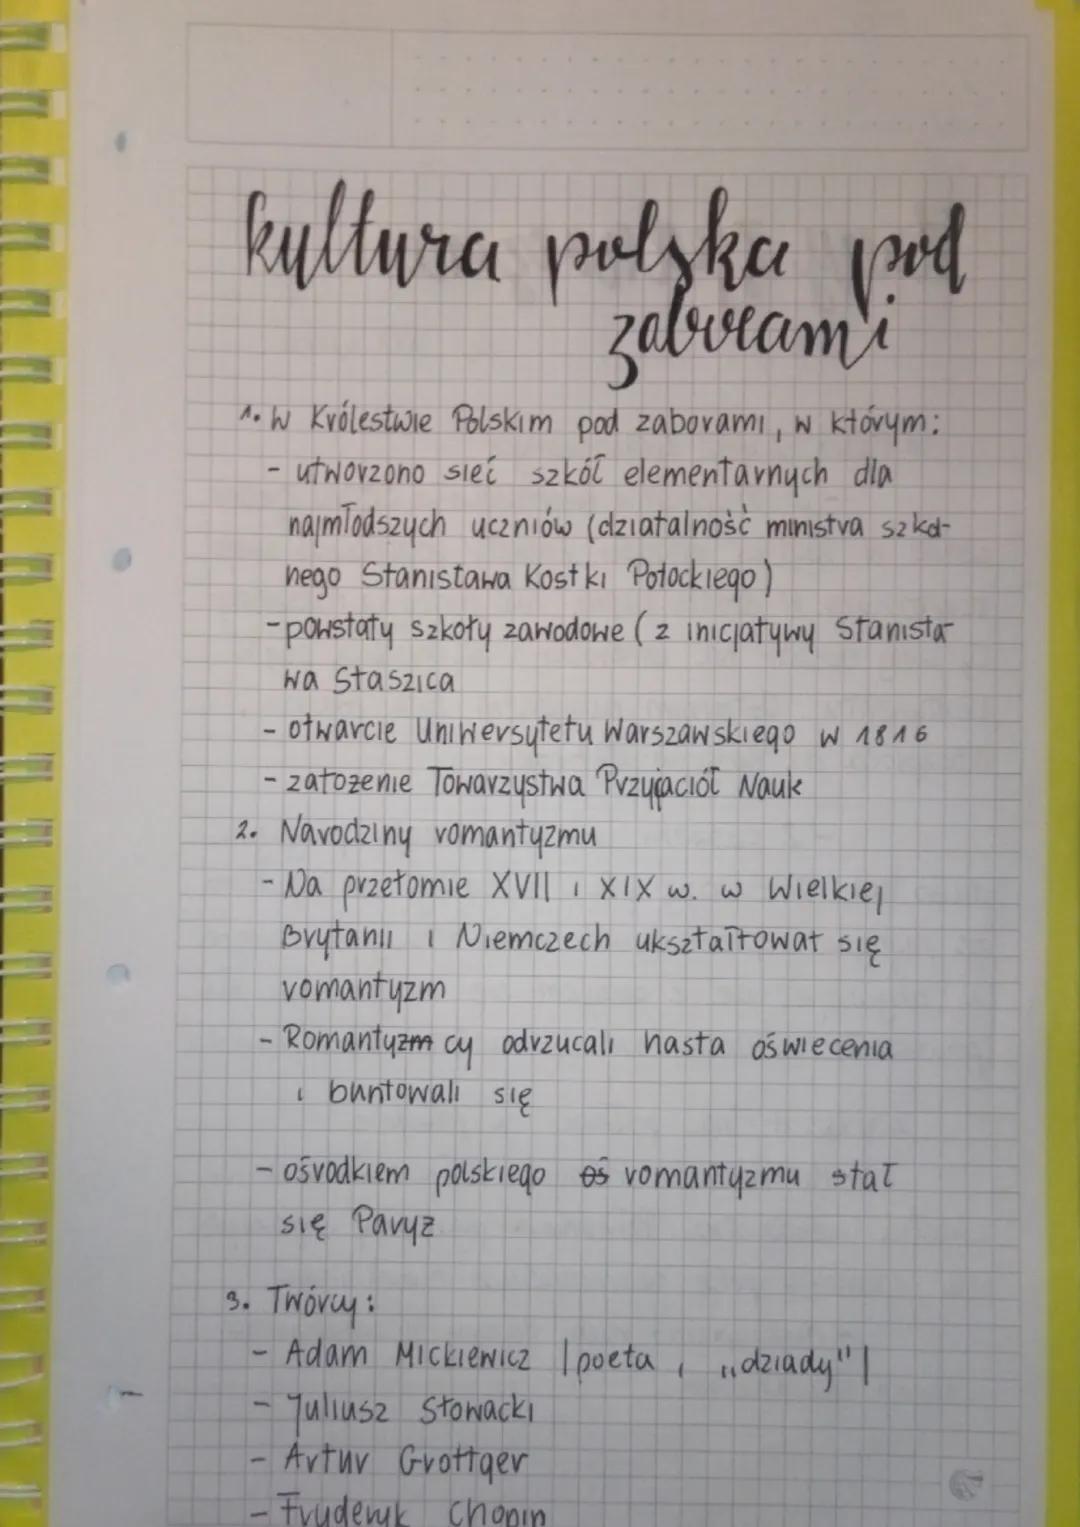 kultura polska pod
zaborami
1. W Królestwie Polskim pod zaborami, w którym:
- utworzono sieć szkół elementarnych dla
najmłodszych uczniów (działalność ministra szkol-
nego Stanisława Kostki Potockiego)
- powstały szkoły zawodowe (z inicjatywy Stanisła-
wa Staszica
- otwarcie Uniwersytetu Warszawskiego w 1816
- założenie Towarzystwa Przyjaciół Nauk
2. Narodziny romantyzmu
- Na przełomie XVII i XIX w. w Wielkiej
Brytanii i Niemczech ukształtował się
romantyzm
- Romantyzm cy odrzucali hasła oświecenia
i buntowali się
- ośrodkiem polskiego oś romantyzmu stał
się Paryż
3. Twórcy:
- Adam Mickiewicz |poeta, „dziady"|
- Juliusz Słowacki
- Artur Grottger
- Fryderyk Chopin